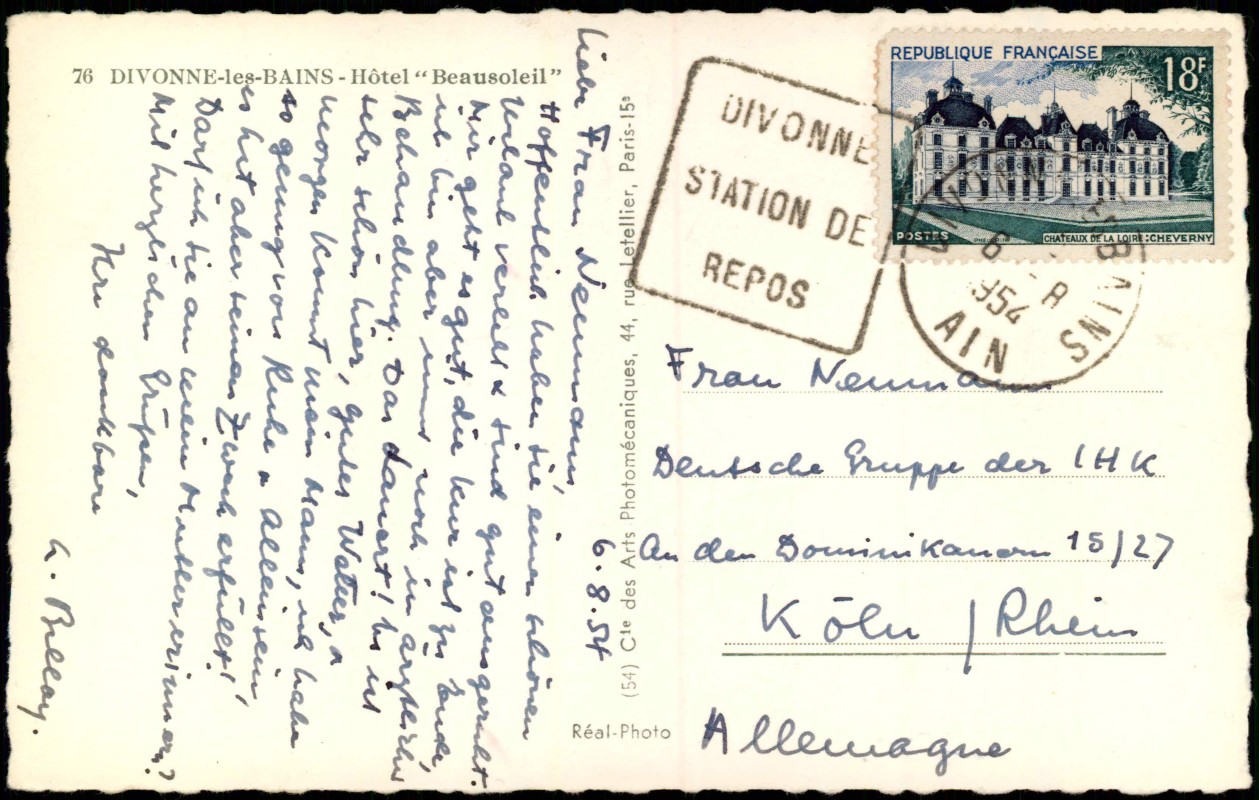 76 DIVONNE-les-BAINS - Hôtel "Beausoleil"
6.8.54
Liebe Frau Neumann,
Hoffentlich haben Sie einen schönen
Urlaub verlebt & sind gut ausgeruht.
Mir geht es gut, die Kur ist zu Ende,
ich bin aber immer noch in ärztlicher
Behandlung. Das dauert! Es ist
sehr schön hier, gutes Wetter, &
morgen kommt mein Mann, ich habe
so genug von Ruhe & Alleinsein,
es hat aber seinen Zweck erfüllt!
Darf ich Sie an meine Mutter erinnern?
Mit herzlichen Grüßen,
Ihre dankbare
Réal-Photo
(54) Cie des Arts Photomécaniques, 44, rue Letellier, Paris-15e
DIVONNE
STATION DE
REPOS
REPUBLIQUE FRANÇAISE
18F
POSTES
CHATEAUX DE LA LOIRE: CHEVERNY
DIVONNE BAINS
1954
AIN
Frau Neumann
Deutsche Gruppe der IHK
An den Dominikanern 15/27
Köln / Rhein
Allemagne